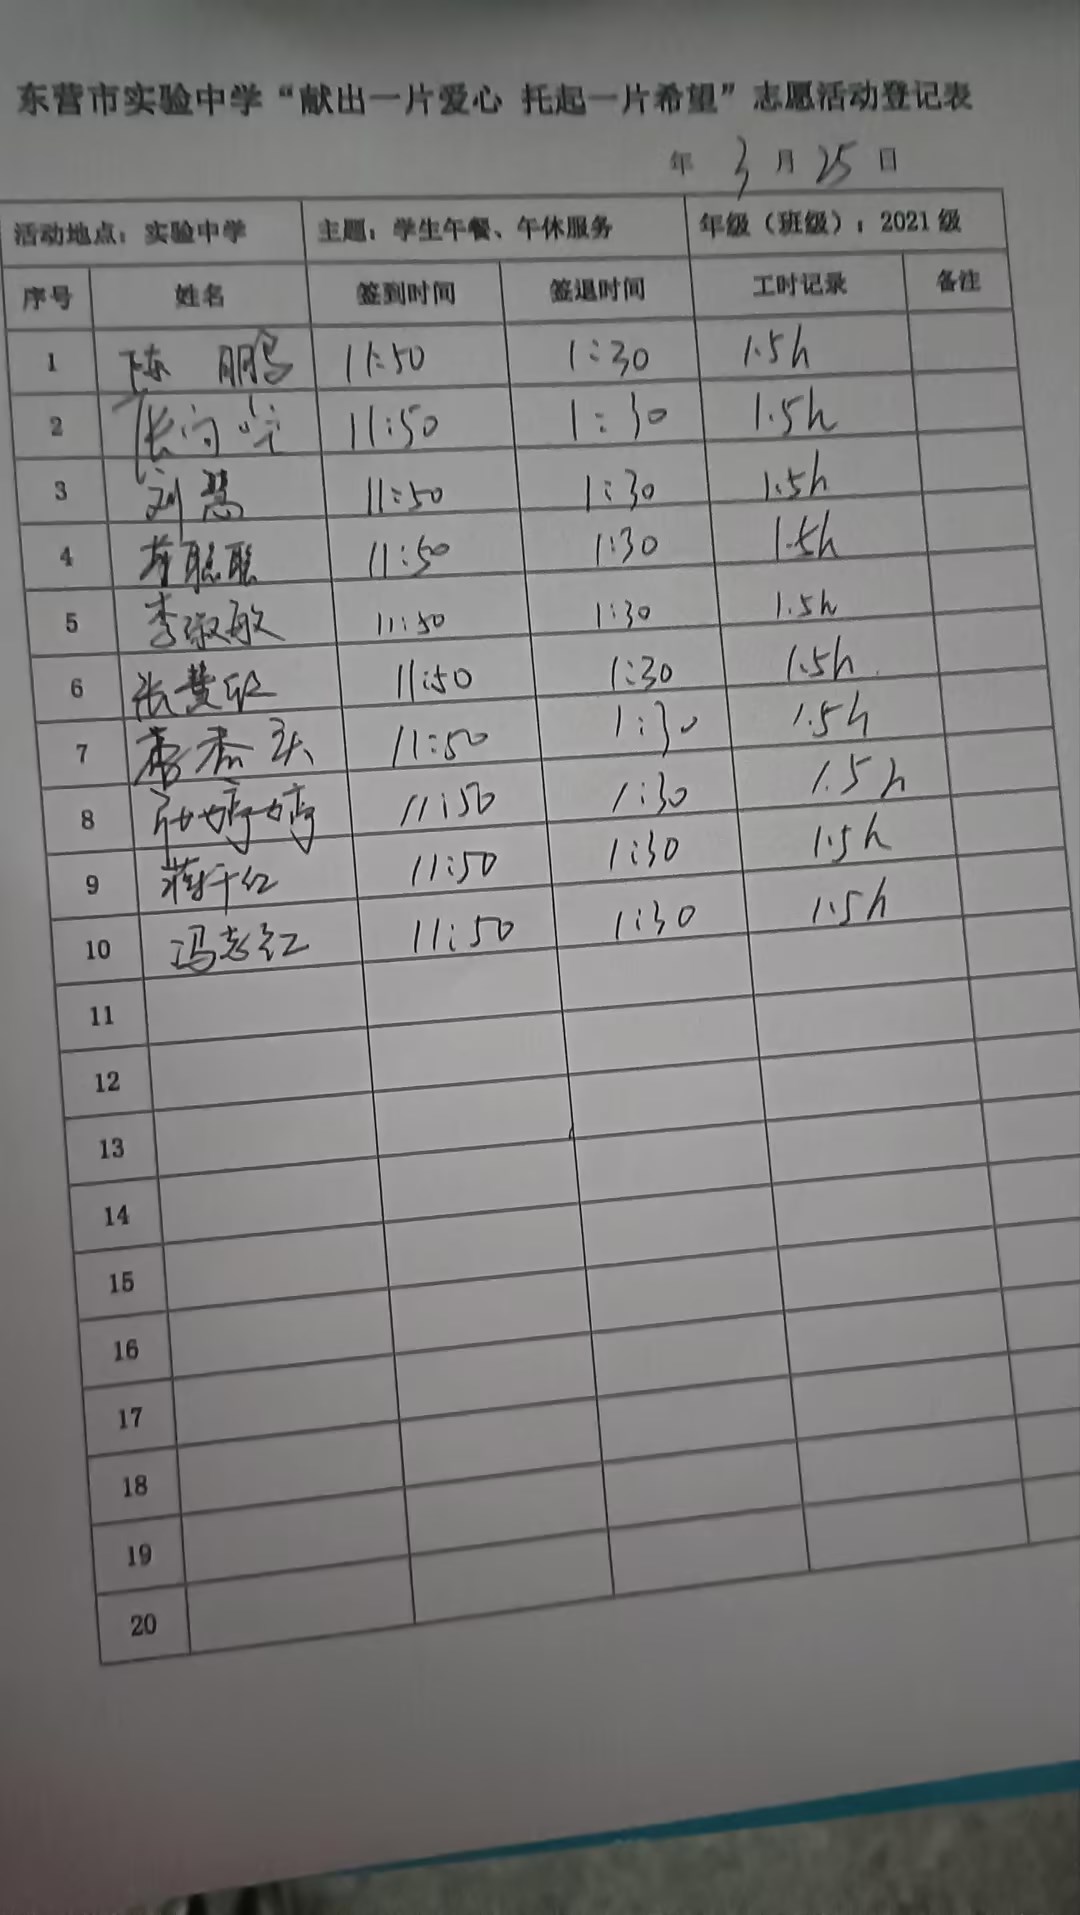 东营市实验中学“献出一片爱心 托起一片希望”志愿活动登记表
年 3 月 25 日
活动地点：实验中学 主题：学生午餐、午休服务 年级（班级）：2021 级
序号 姓名 签到时间 签退时间 工时记录 备注
1 陈鹏 11:50 1:30 1.5h
2 张 11:50 1:30 1.5h
3 刘慧 11:50 1:30 1.5h
4 11:50 1:30 1.5h
5 李淑敏 11:50 1:30 1.5h
6 张慧 11:50 1:30 1.5h
7 11:50 1:30 1.5h
8 婷婷 11:50 1:30 1.5h
9 蒋千红 11:50 1:30 1.5h
10 冯志红 11:50 1:30 1.5h
11
12
13
14
15
16
17
18
19
20